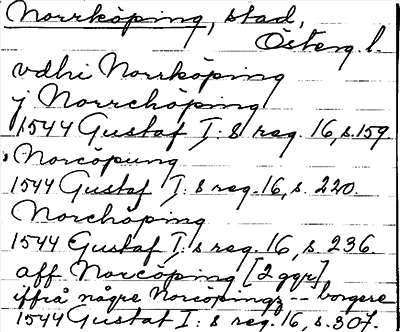 Norrköping, stad,
Österg. l.
vdhi Norrköping
j Norrchöping
1544 Gustaf I:s reg. 16, s. 159.
Norcöpung
1544 Gustaf I:s reg. 16, s. 220.
Norchöping
1544 Gustaf I:s reg. 16, s. 236.
aff Norcöping [2 ggr]
iffrå någre Norcöpings -- borgere
1544 Gustaf I:s reg. 16, s. 307.